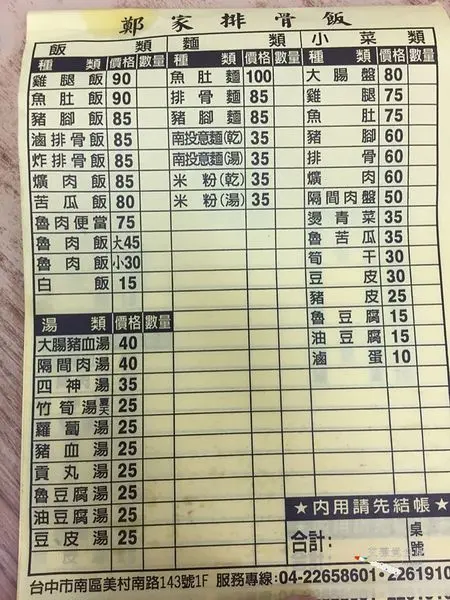 鄭家排骨飯
飯類 麵類 小菜類
種類 價格 數量 種類 價格 數量 種類 價格 數量
雞腿飯 90 魚肚麵 100 大腸盤 80
魚肚飯 90 排骨麵 85 雞腿 75
豬腳飯 85 豬腳麵 85 魚肚 75
滷排骨飯 85 南投意麵(乾) 35 豬腳 60
炸排骨飯 85 南投意麵(湯) 35 排骨 60
爌肉飯 85 米粉(乾) 35 爌肉 60
苦瓜飯 80 米粉(湯) 35 隔間肉盤 50
魯肉便當 75 燙青菜 35
魯肉飯 大45 魯苦瓜 35
魯肉飯 小30 筍干 30
白飯 15 豆皮 30
豬皮 25
湯類 價格 數量 魯豆腐 15
大腸豬血湯 40 油豆腐 15
隔間肉湯 40 滷蛋 10
四神湯 35
竹筍湯夏天 25
蘿蔔湯 25
豬血湯 25
貢丸湯 25
魯豆腐湯 25
油豆腐湯 25
豆皮湯 25
★內用請先結帳★
合計: 桌號
台中市南區美村南路143號1F 服務專線:04-22658601・2261910